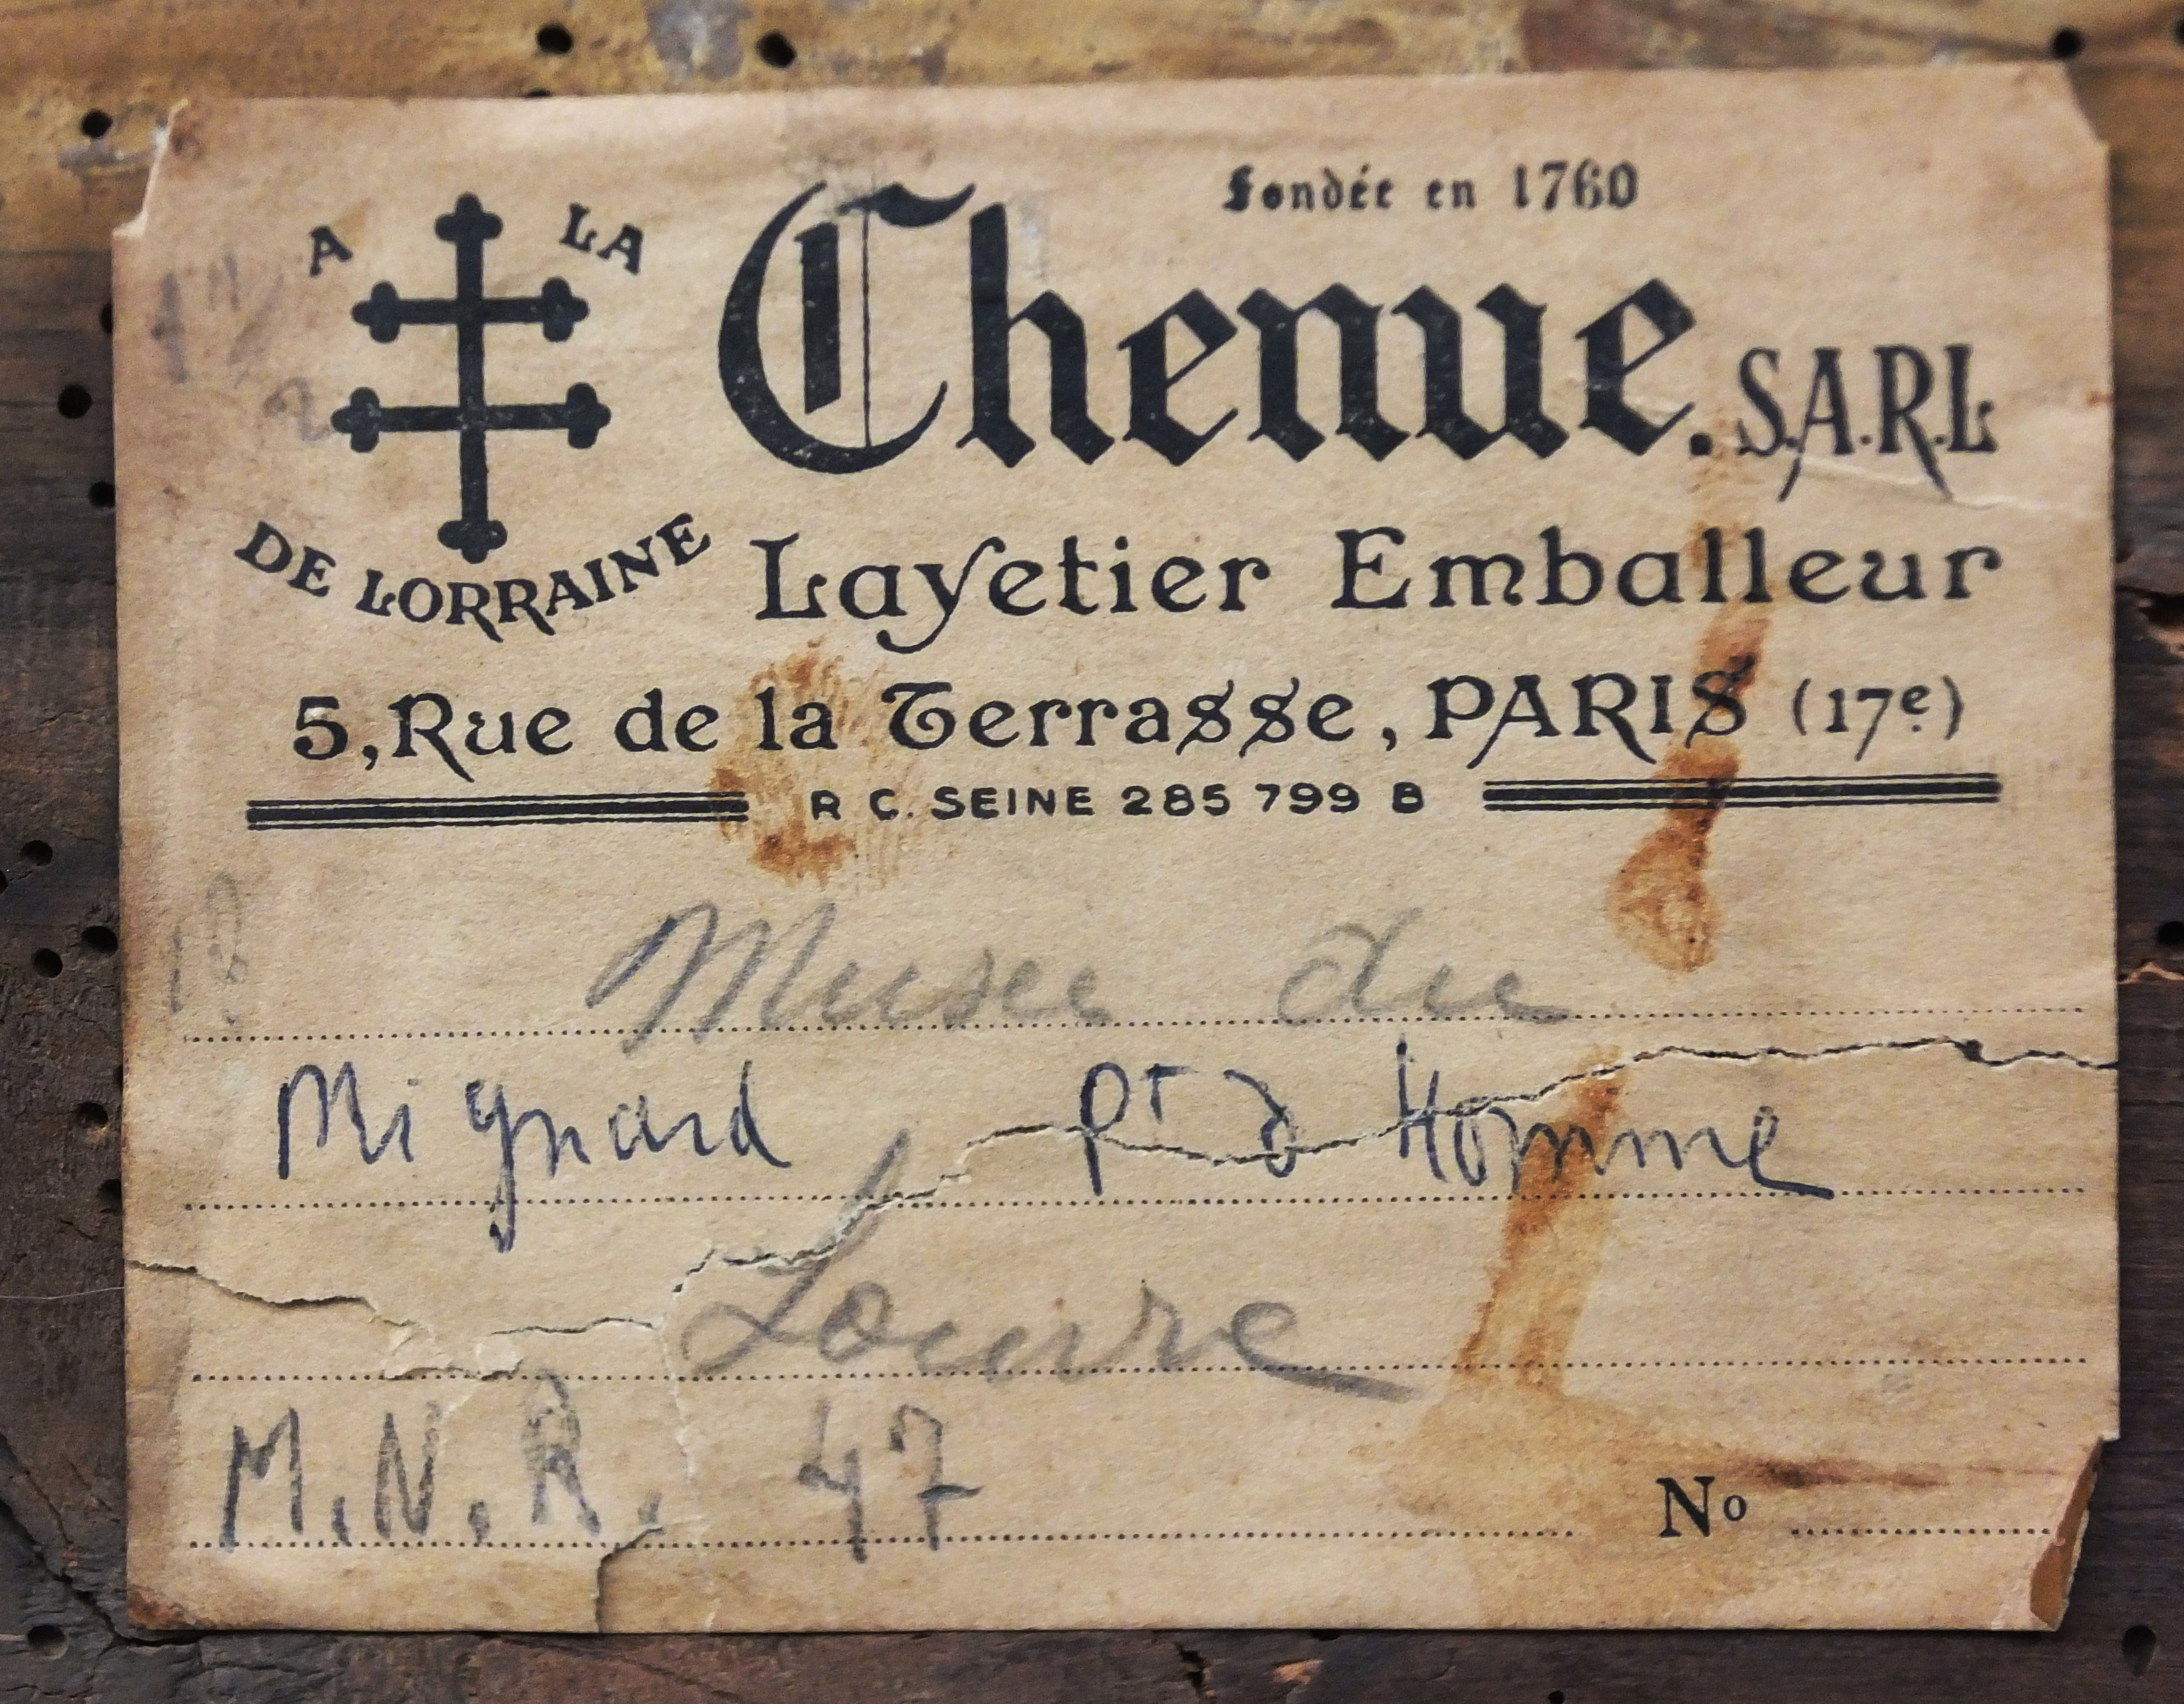 A LA
DE LORRAINE
fondée en 1760
Chenue. S.A.R.L
Layetier Emballeur
5, Rue de la Terrasse, PARIS (17e)
R C. SEINE 285 799 B
Musee du
Mignard Pt d Homme
Louvre
M.N.R. 47
No